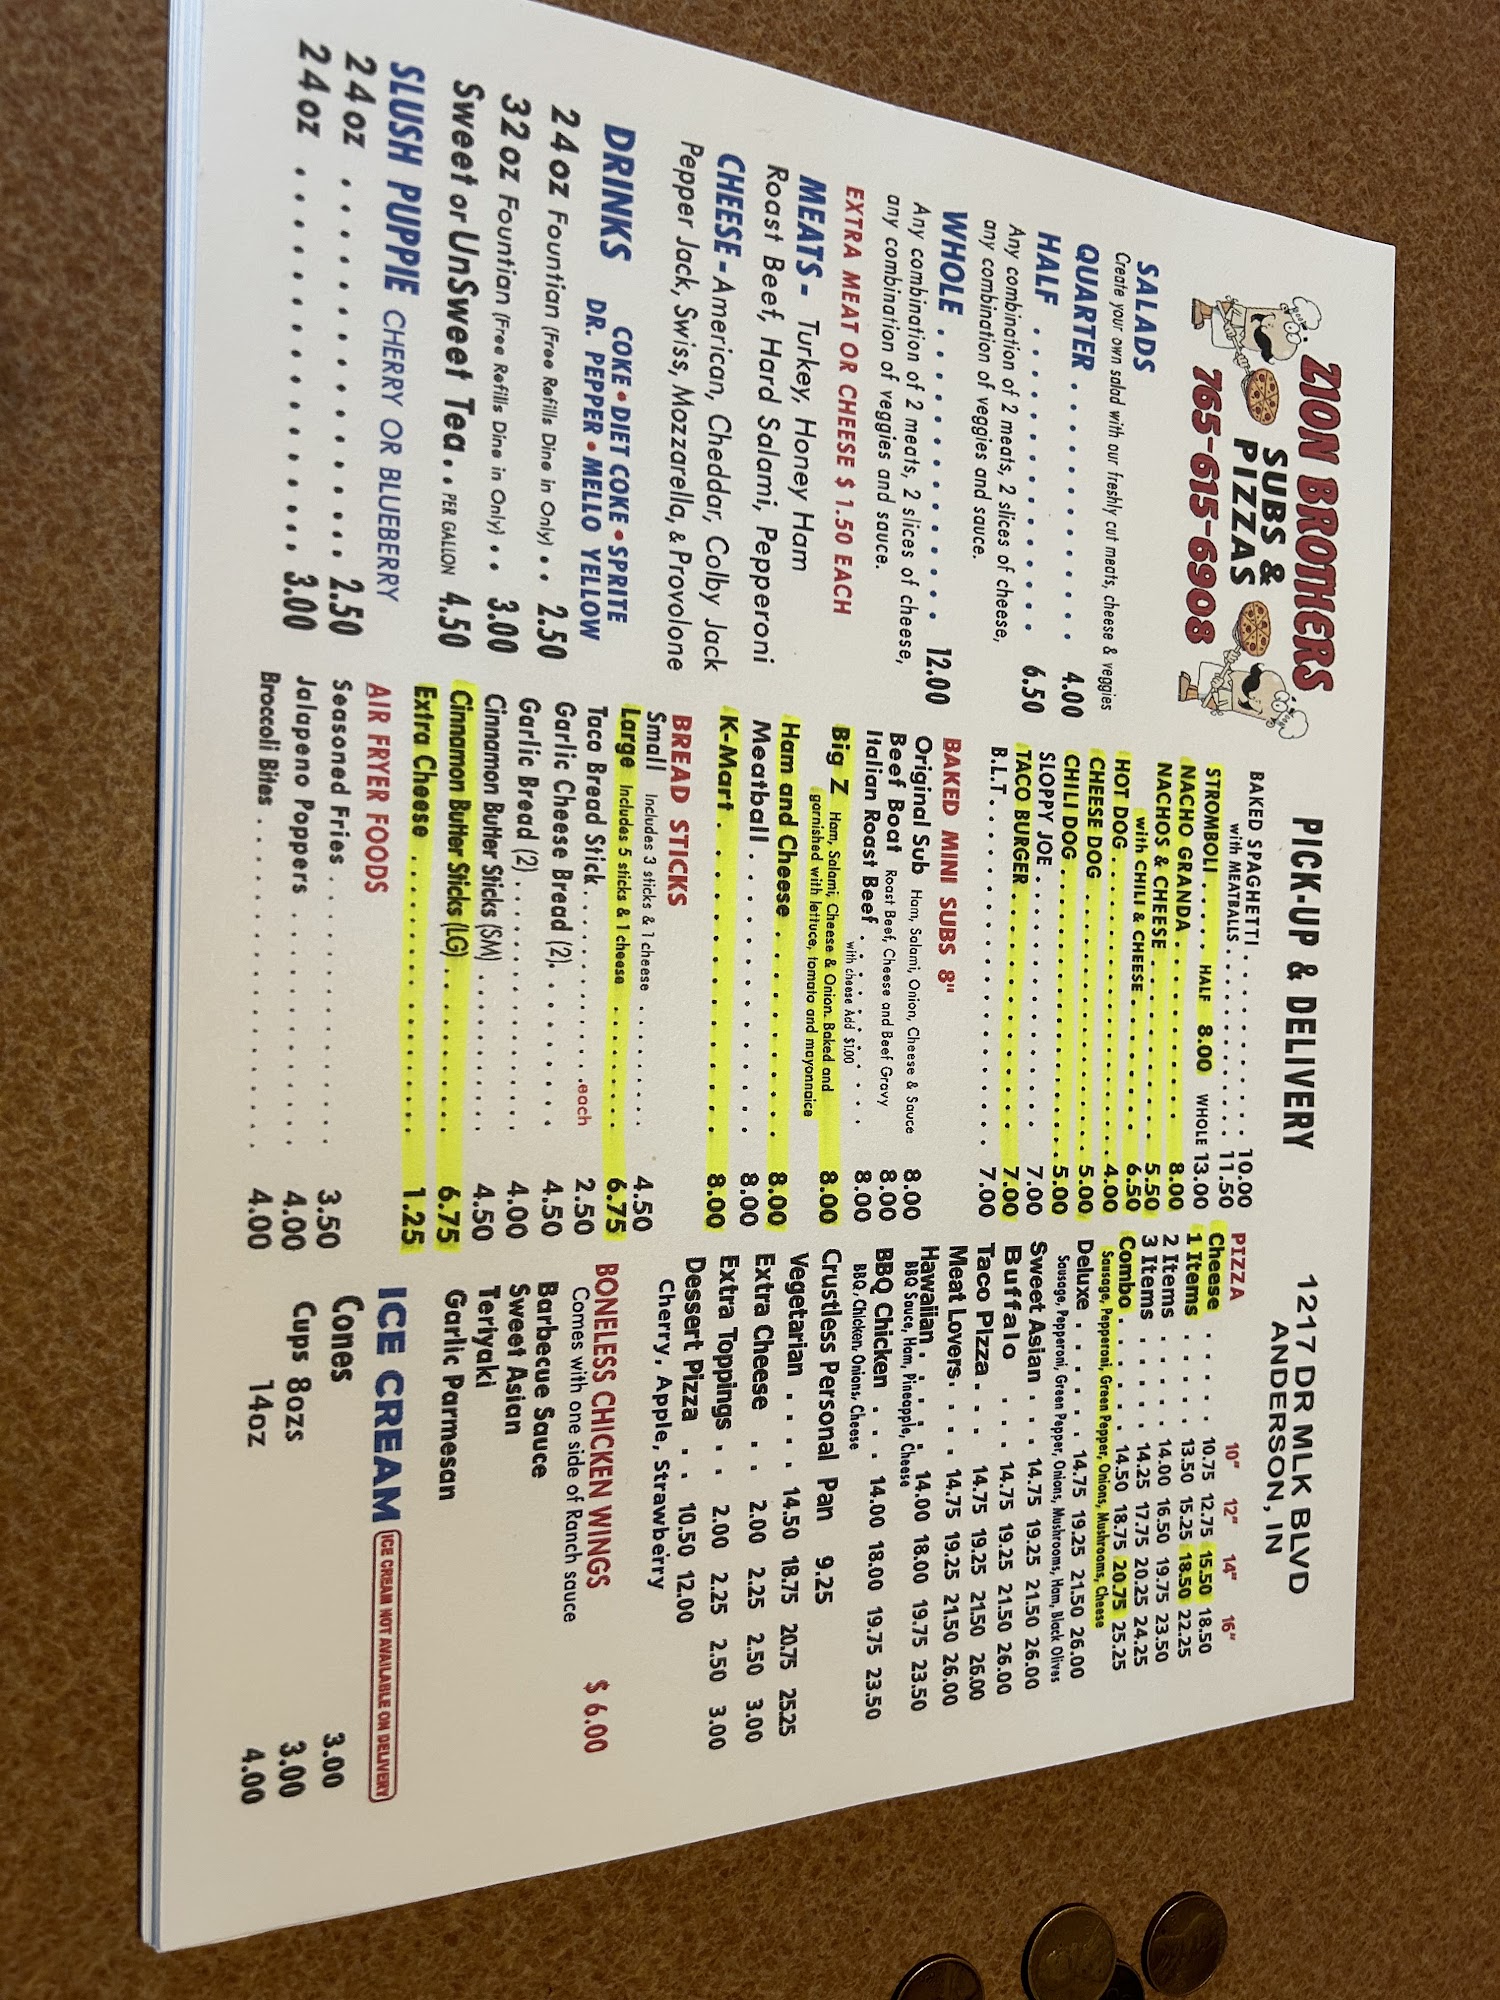 ZION BROTHERS
SUBS &
PIZZAS
765-615-6908
PICK-UP & DELIVERY
1217 DR MLK BLVD
ANDERSON, IN
SALADS
Create your own salad with our freshly cut meats, cheese & veggies
QUARTER . . . . . . . . . . . 4.00
HALF . . . . . . . . . . . . . 6.50
Any combination of 2 meats, 2 slices of cheese,
any combination of veggies and sauce.
WHOLE . . . . . . . . . . . . . 12.00
Any combination of 2 meats, 2 slices of cheese,
any combination of veggies and sauce.
EXTRA MEAT OR CHEESE $ 1.50 EACH
MEATS - Turkey, Honey Ham
Roast Beef, Hard Salami, Pepperoni
CHEESE - American, Cheddar, Colby Jack
Pepper Jack, Swiss, Mozzarella, & Provolone
DRINKS
COKE • DIET COKE • SPRITE
DR. PEPPER • MELLO YELLOW
24oz Fountian (Free Refills Dine in Only) . . 2.50
32oz Fountian (Free Refills Dine in Only) . . 3.00
Sweet or UnSweet Tea. . PER GALLON 4.50
SLUSH PUPPIE CHERRY OR BLUEBERRY
24oz . . . . . . . . . . . . . . . 2.50
24oz . . . . . . . . . . . . . . . 3.00
BAKED SPAGHETTI . . . . . . . . . . . 10.00
with MEATBALLS . . . . . . . . . . . 11.50
STROMBOLI . . . . . HALF 8.00 WHOLE 13.00
NACHO GRANDA . . . . . . . . . . . 8.00
NACHOS & CHEESE . . . . . . . . . . . 5.50
with CHILI & CHEESE . . . . . . . . . . 6.50
HOT DOG . . . . . . . . . . . . . . . 4.00
CHEESE DOG . . . . . . . . . . . . . . 5.00
CHILI DOG . . . . . . . . . . . . . . . 5.00
SLOPPY JOE . . . . . . . . . . . . . . 7.00
TACO BURGER . . . . . . . . . . . . . 7.00
B.L.T. . . . . . . . . . . . . . . . . . 7.00
BAKED MINI SUBS 8"
Original Sub Ham, Salami, Onion, Cheese & Sauce 8.00
Beef Boat Roast Beef, Cheese and Beef Gravy 8.00
Italian Roast Beef . . . . . . . . . . . 8.00
with cheese Add $1.00
Big Z Ham, Salami, Cheese & Onion. Baked and 8.00
garnished with lettuce, tomato and mayonnaice
Ham and Cheese . . . . . . . . . . . 8.00
Meatball . . . . . . . . . . . . . . . 8.00
K-Mart . . . . . . . . . . . . . . . . 8.00
BREAD STICKS
Small Includes 3 sticks & 1 cheese . . . . . . . . 4.50
Large Includes 5 sticks & 1 cheese . . . . . . . . 6.75
Taco Bread Stick . . . . . . . . . . . each 2.50
Garlic Cheese Bread (2). . . . . . . . . 4.50
Garlic Bread (2) . . . . . . . . . . . . 4.00
Cinnamon Butter Sticks (SM) . . . . . . . . 4.50
Cinnamon Butter Sticks (LG) . . . . . . . . 6.75
Extra Cheese . . . . . . . . . . . . . . 1.25
AIR FRYER FOODS
Seasoned Fries . . . . . . . . . . . . . 3.50
Jalapeno Poppers . . . . . . . . . . . . 4.00
Broccoli Bites . . . . . . . . . . . . . 4.00
PIZZA 10" 12" 14" 16"
Cheese . . . . . 10.75 12.75 15.50 18.50
1 Items . . . . . 13.50 15.25 18.50 22.25
2 Items . . . . . 14.00 16.50 19.75 23.50
3 Items . . . . . 14.25 17.75 20.25 24.25
Combo . . . . . . 14.50 18.75 20.75 25.25
Sausage, Pepperoni, Green Pepper, Onions, Mushrooms, Cheese
Deluxe . . . . . . 14.75 19.25 21.50 26.00
Sausage, Pepperoni, Green Pepper, Onions, Mushrooms, Ham, Black Olives
Sweet Asian . . . 14.75 19.25 21.50 26.00
Buffalo . . . 14.75 19.25 21.50 26.00
Taco Pizza . . . 14.75 19.25 21.50 26.00
Meat Lovers. . . . 14.75 19.25 21.50 26.00
Hawaiian . . . . . 14.00 18.00 19.75 23.50
BBQ Sauce, Ham, Pineapple, Cheese
BBQ Chicken . . . 14.00 18.00 19.75 23.50
BBQ, Chicken, Onions, Cheese
Crustless Personal Pan 9.25
Vegetarian . . . . 14.50 18.75 20.75 25.25
Extra Cheese . . 2.00 2.25 2.50 3.00
Extra Toppings . . 2.00 2.25 2.50 3.00
Dessert Pizza . . 10.50 12.00
Cherry, Apple, Strawberry
BONELESS CHICKEN WINGS $ 6.00
Comes with one side of Ranch sauce
Barbecue Sauce
Sweet Asian
Teriyaki
Garlic Parmesan
ICE CREAM ICE CREAM NOT AVAILABLE ON DELIVERY
Cones 3.00
Cups 8ozs 3.00
14oz 4.00